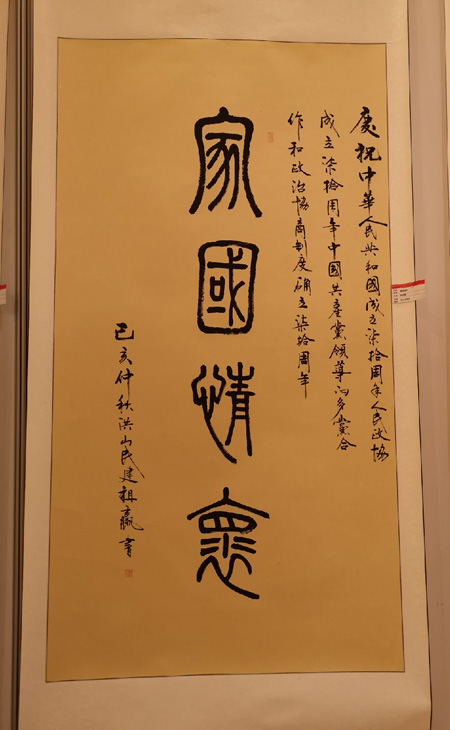 慶祝中華人民共和國成立柒拾周年人民政協
成立柒拾周年中國共產黨領導的多黨合
作和政治協商制度确立柒拾周年
家國情懷
己亥仲秋洪山民建祖嬴書